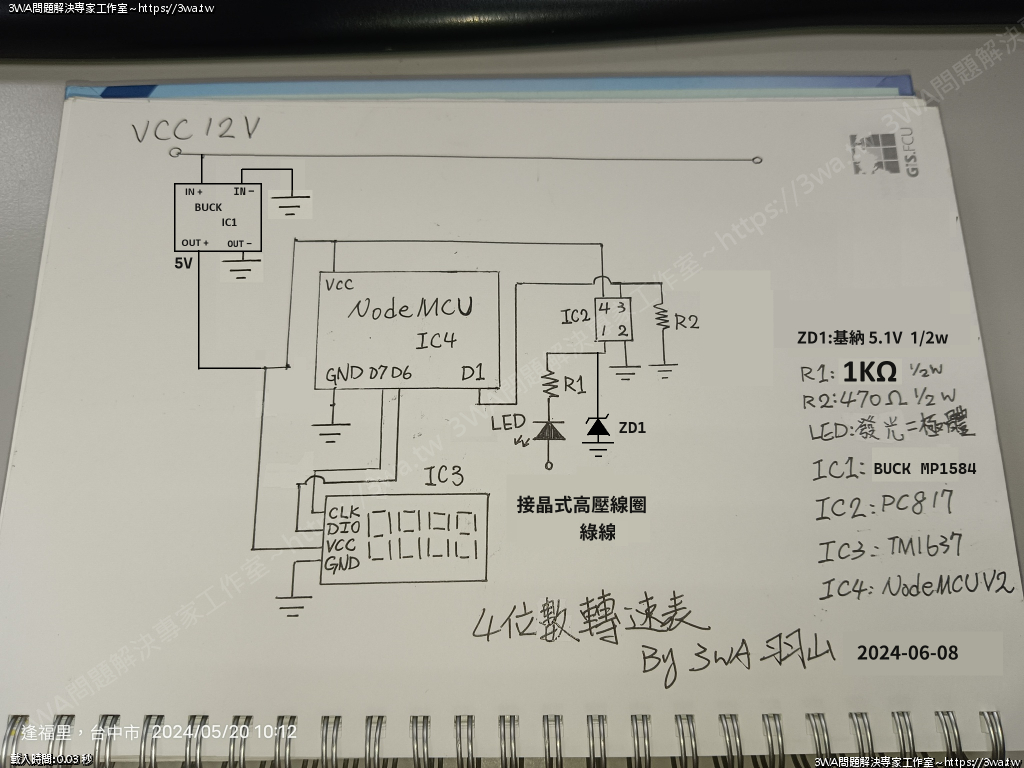 3WA問題解決專家工作室~https://3wa.tw
VCC 12V
GIS.FCU
IN + IN −
BUCK
IC1
OUT + OUT −
5V
VCC
NodeMCU
IC4
GND D7 D6 D1
IC2
4 3
1 2
R2
R1
LED
ZD1
IC3
CLK
DIO
VCC
GND
接晶式高壓線圈
綠線
ZD1:基納 5.1V 1/2w
R1: 1KΩ 1/2W
R2:470Ω 1/2W
LED:發光二極體
IC1: BUCK MP1584
IC2: PC817
IC3: TM1637
IC4: NodeMCU V2
4位數轉速表
By 3WA 羽山
2024-06-08
逢福里，台中市 2024/05/20 10:12
載入時間:0.03 秒
3WA問題解決專家工作室~https://3wa.tw
3WA問題解決專家工作室~https://3wa.tw